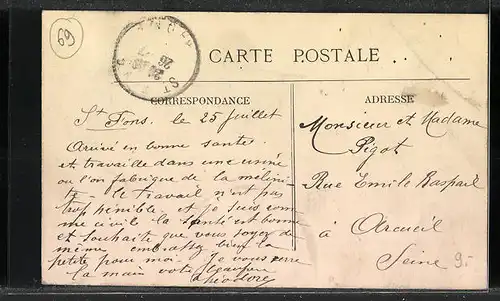 69
CARTE POSTALE
CORRESPONDANCE
ADRESSE
St Fons. le 25 juillet
Arrivé en bonne santé
et travaille dans une usine
ou l'on fabrique de la mélini-
te - le travail n'est pas
trop pénible et je suis com
me civile la santé est bonne
et souhaite que vous soyez de
même embrassez bien la
petite pour moi. je vous serre
la main votre
Théodore
Monsieur et Madame
Pigot
Rue Emile Raspail
à Arcueil
Seine
9.-